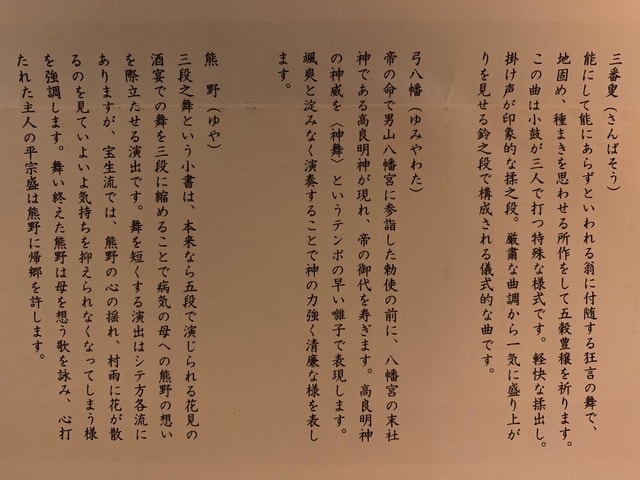 三番叟（さんばそう）
能にして能にあらずといわれる翁に付随する狂言の舞で、
地固め、種まきを思わせる所作をして五穀豊穣を祈ります。
この曲は小鼓が三人で打つ特殊な様式です。軽快な揉出し。
掛け声が印象的な揉之段。厳粛な曲調から一気に盛り上が
りを見せる鈴之段で構成される儀式的な曲です。
弓八幡（ゆみやわた）
帝の命で男山八幡宮に参詣した勅使の前に、八幡宮の末社
神である高良明神が現れ、帝の御代を寿ぎます。高良明神
の神威を〈神舞〉というテンポの早い囃子で表現します。
颯爽と淀みなく演奏することで神の力強く清廉な様を表し
ます。
熊　野（ゆや）
三段之舞という小書は、本来なら五段で演じられる花見の
酒宴での舞を三段に縮めることで病気の母への熊野の想い
を際立たせる演出です。舞を短くする演出はシテ方各流に
ありますが、宝生流では、熊野の心の揺れ、村雨に花が散
るのを見ていよいよ気持ちを抑えられなくなってしまう様
を強調します。舞い終えた熊野は母を想う歌を詠み、心打
たれた主人の平宗盛は熊野に帰郷を許します。